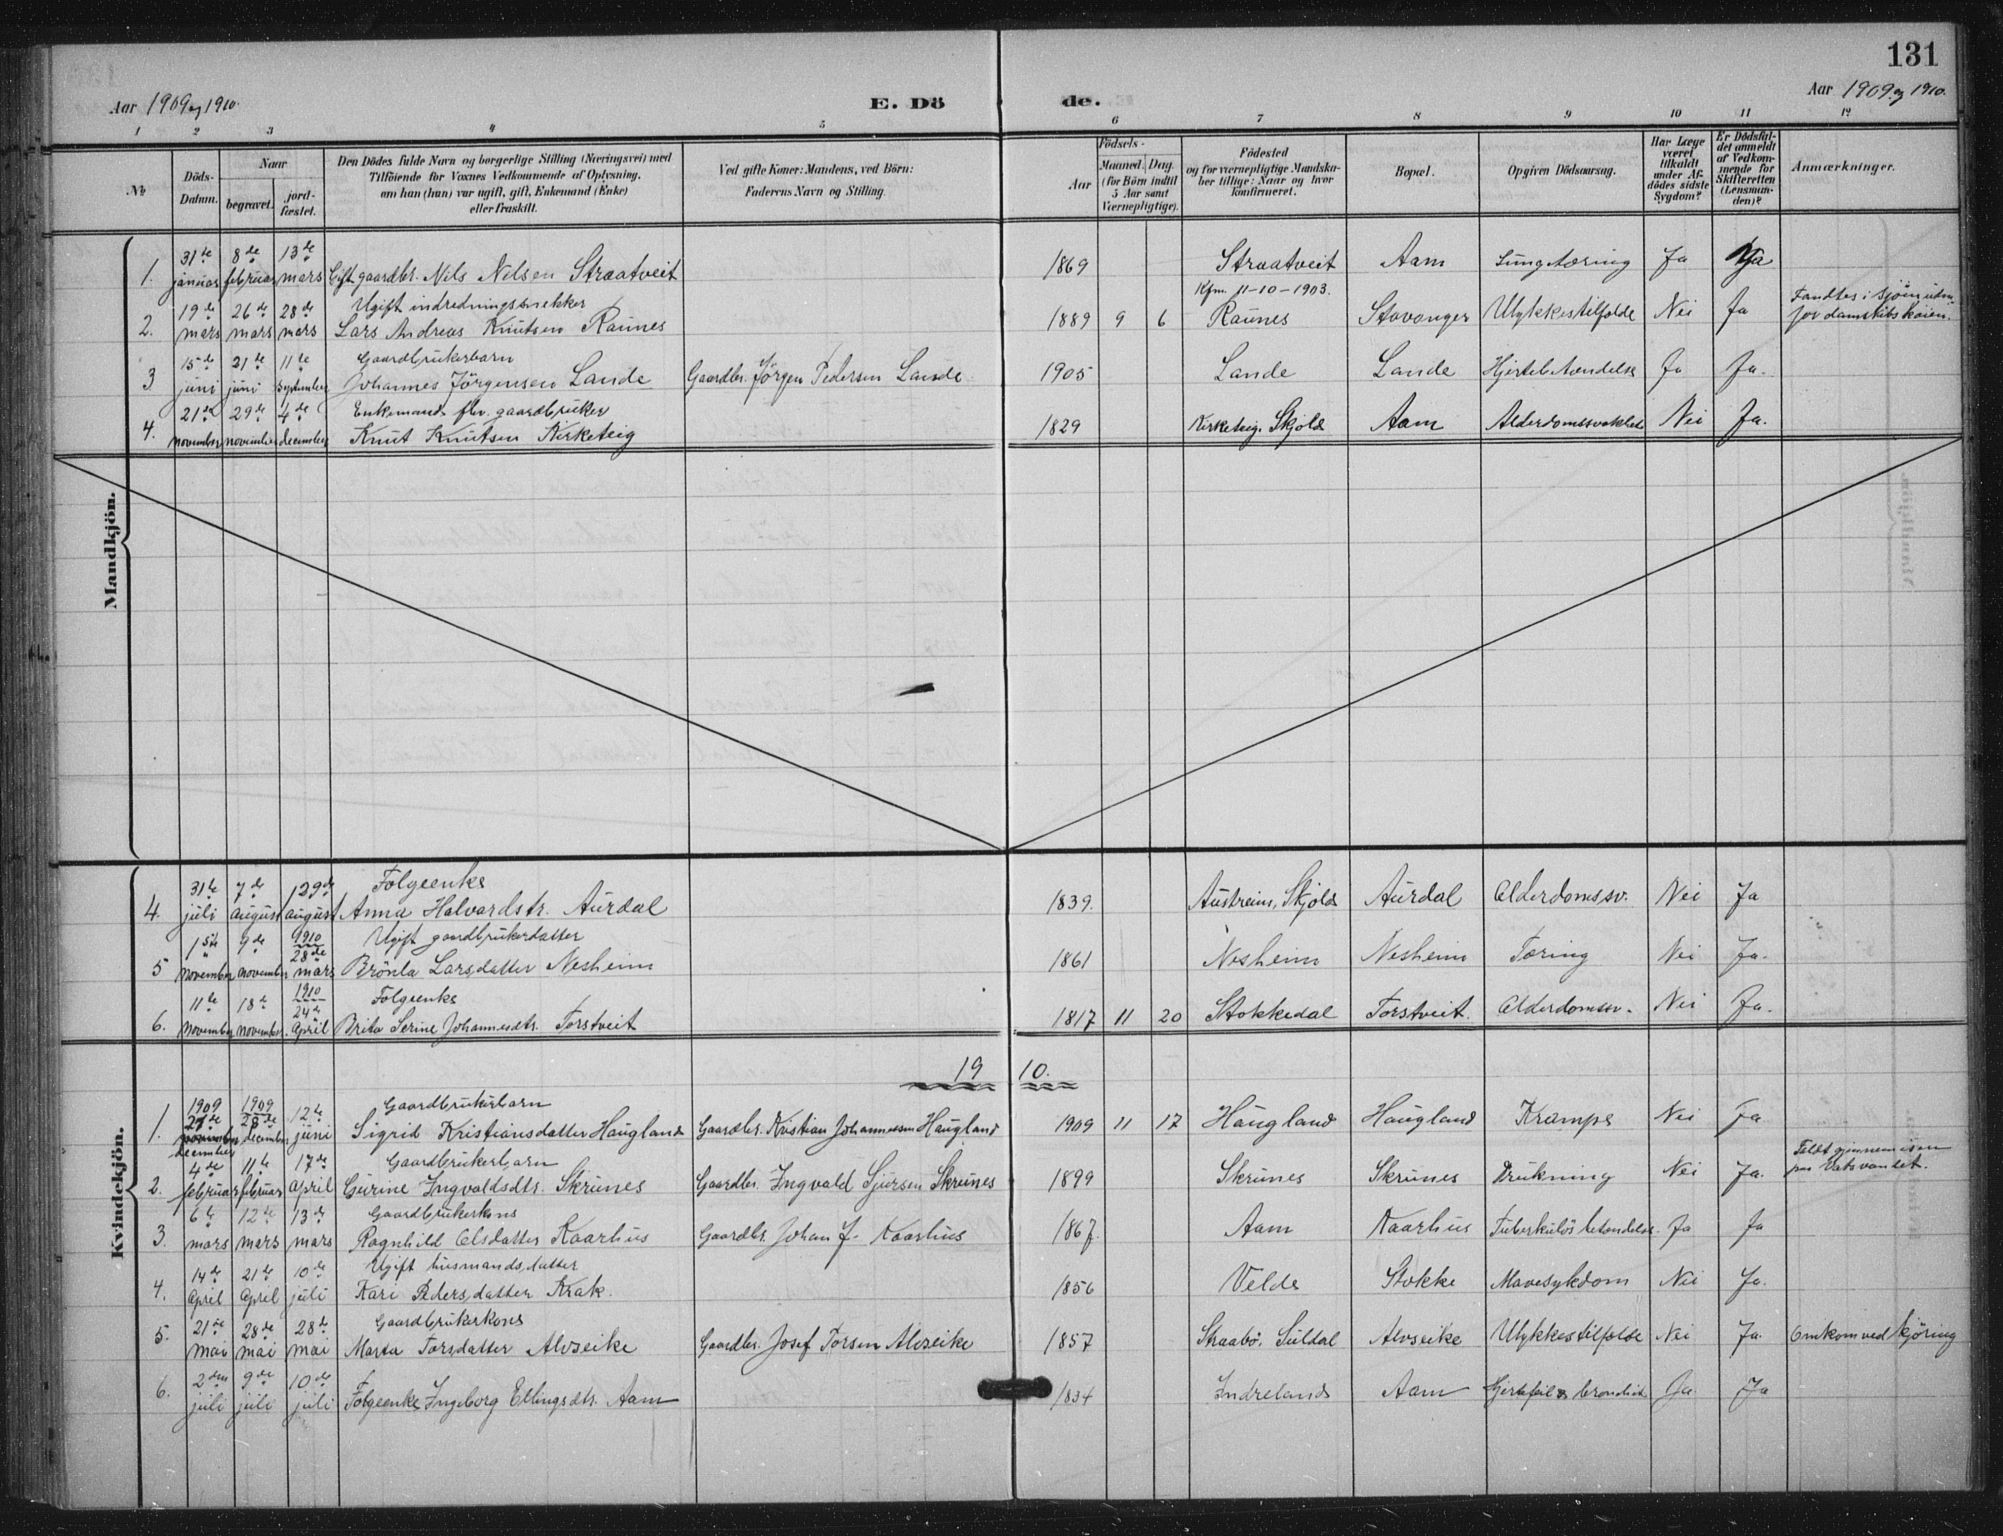 131
Aar 1909 og 1910.
E. Dö
de.
Aar 1909 og 1910.
1 2 3 4 5 6 7 8 9 10 11 12
No
Döds-Datum.
Naar
begravet.
jord-fæstet.
Den Dödes fulde Navn og borgerlige Stilling (Næringsvei) med
Tilföiende for Voxnes Vedkommende af Oplysning,
om han (hun) var ugift, gift, Enkemand (Enke)
eller fraskilt.
Ved gifte Koner: Mandens, ved Börn:
Faderens Navn og Stilling.
Födsels-
Aar
Maaned. Dag.
(for Börn indtil
5 Aar samt
Værnepligtige).
Födested
og for værnepligtige Mandska-
ber tillige: Naar og hvor
konfirmeret.
Bopæl.
Opgiven Dödsaarsag.
Har Læge
været
tilkaldt
under Af-
dödes sidste
Sygdom?
Er Dödsfal-
det anmeldt
af Vedkom-
mende for
Skifteretten
(Lensman-
den)?
Anmærkninger.
Mandkjön.
1. 31te januar 8de februar 13de mars Gift gaardbr. Nils Nilsen Straatveit 1869 Straatveit Aam Lungetæring Ja Ja
2. 19de mars 26de mars 28de mars Ugift indredningssnekker
Lars Andreas Knutsen Raunes 1889 9 6 Kfm. 11-10-1903. Raunes Stavanger Ulykkestilfælde Nei Ja Fandtes i sjöen uden-
for damskibskaien.
3 15de juni 21de juni 11te september Gaardbrukerbarn
Johannes Jörgensen Lande Gaardbr. Jörgen Pedersen Lande 1905 Lande Lande Hjertebetændelse Ja Ja.
4. 21de november 29de november 4de december Enkemand flv. gaardbruker
Knut Knutsen Kirketeig 1829 Kirketeig, Skjold Aam Alderdomssvakhed Nei Ja.
Kvindekjön.
4. 31te juli 7de august 29de august Folgeenke
Anna Halvardstr. Aurdal 1839. Austreim, Skjold Aurdal Alderdomssv. Nei Ja
5 1ste november 9de november 1910 28de mars Ugift gaardbrukerdatter
Brönla Larsdatter Nesheim 1861 Nesheim Nesheim Tæring Nei Ja.
6. 11te november 18de november. 1910 24de April Folgeenke
Brita Serine Johannesdtr. Torstveit 1817 11 20 Stokkedal Torstveit. Alderdomssv. Nei Ja.
19 10.
Kvindekjön.
1. 1909 27de december 1909 28de december 12te juni Gaardbrukerbarn
Sigrid Kristiansdatter Haugland Gaardbr. Kristian Johannesen Haugland 1909 11 17 Haugland Haugland Krampe Nei Ja
2. 4de februar 11te februar 17de April Gaardbrukerbarn
Gurine Ingvaldsdtr. Skrunes Gaardbr. Ingvald Sjursen Skrunes 1899 Skrunes Skrunes Drukning Nei Ja. Faldt gjennem isen
paa Vatsvandet.
3. 6te mars 12te mars 13de mars Gaardbrukerkone
Ragnhild Olsdatter Kaarhus Gaardbr. Johan J. Kaarhus 1867. Aam Kaarhus Tuberkulös betændelse. Ja Ja
4. 14de April 21de April 10de juli Ugift husmandsdatter
Kari Pedersdatter Krak. 1856 Velde Stokke Mavesykdom Nei Ja.
5. 21de mai 28de mai 28de mai Gaardbrukerkone
Marta Torsdatter Alvseike Gaardbr. Josef Torsen Alvseike 1857 Skaabö, Suldal Alvseike Ulykkestilfælde Nei Ja. Omkom ved kjöring
6. 2den juli 9de juli 10de juli Folgeenke Ingeborg Ellingsdtr. Aam 1834 Indreland Aam Hjertefeil & bronchit Ja Ja